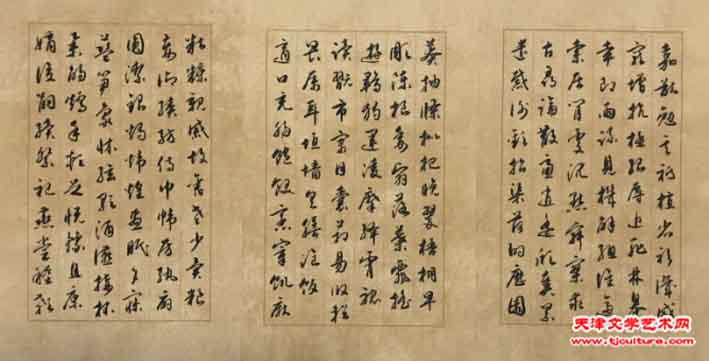 嘉猷勉其祗植省躬譏誡
寵增抗極殆辱近恥林皋
幸即兩疏見機解組誰逼
索居閒處沉默寂寥求
古尋論散慮逍遙欣奏累
遣慼謝歡招渠荷的歷園
莽抽條枇杷晚翠梧桐早
凋陳根委翳落葉飄颻
遊鵾獨運凌摩絳霄耽
讀翫市寓目囊箱易輶攸
畏屬耳垣牆具膳飡飯
適口充腸飽飫烹宰飢厭
糟糠親戚故舊老少異糧
妾御績紡侍巾帷房紈扇
圓潔銀燭煒煌晝眠夕寐
藍筍象床絃歌酒讌接杯
舉觴矯手頓足悅豫且康
嫡後嗣續祭祀烝嘗稽顙
天津文学艺术网
www.tjculture.com